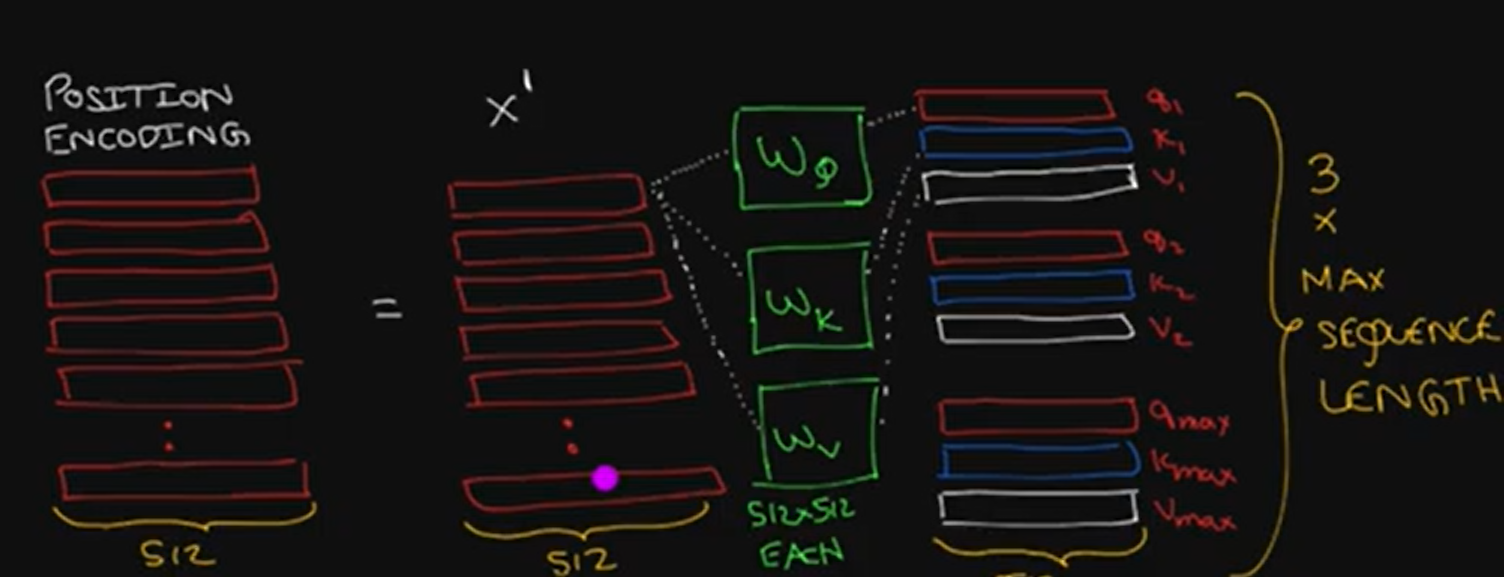 POSITION
ENCODING
X'
=
WQ
WK
WV
512x512
EACH
512
512
q1
K1
V1
q2
K2
V2
qmax
Kmax
Vmax
3
x
MAX
SEQUENCE
LENGTH